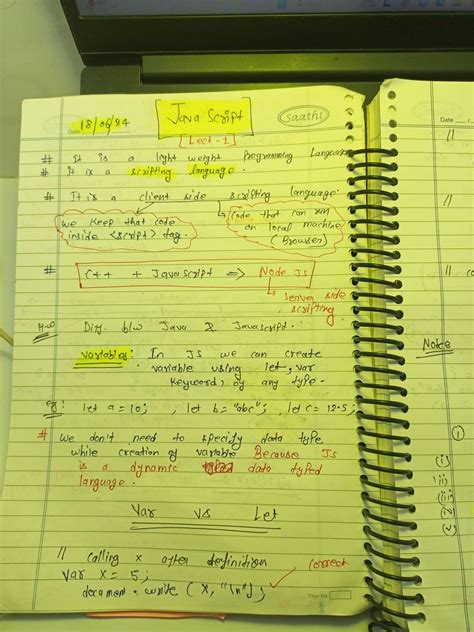 Date 18/06/24
Java Script
saathi
[Lect-1]
# It is a light weight Programming Language
# It is a scripting language.
# It is a client side scripting language.
we keep that code inside <script> tag.
Code that can run on local machine (Browser)
# C++ + JavaScript => Node JS
server side scripting.
H·W Diff. b/w Java & JavaScript.
Variables: In JS we can create
variable using let, var
keyword, of any type.
eg: let a = 10; , let b = "abc"; , let c = 12.5;
# we don't need to specify data type
while creation of variable Because JS
is a dynamic data typed
language.
Var vs Let
// calling x after definition
var x = 5; correct
document.write(x, "\n");
Page No.
Date
//
//
//
Notes
①
(i)
(ii)